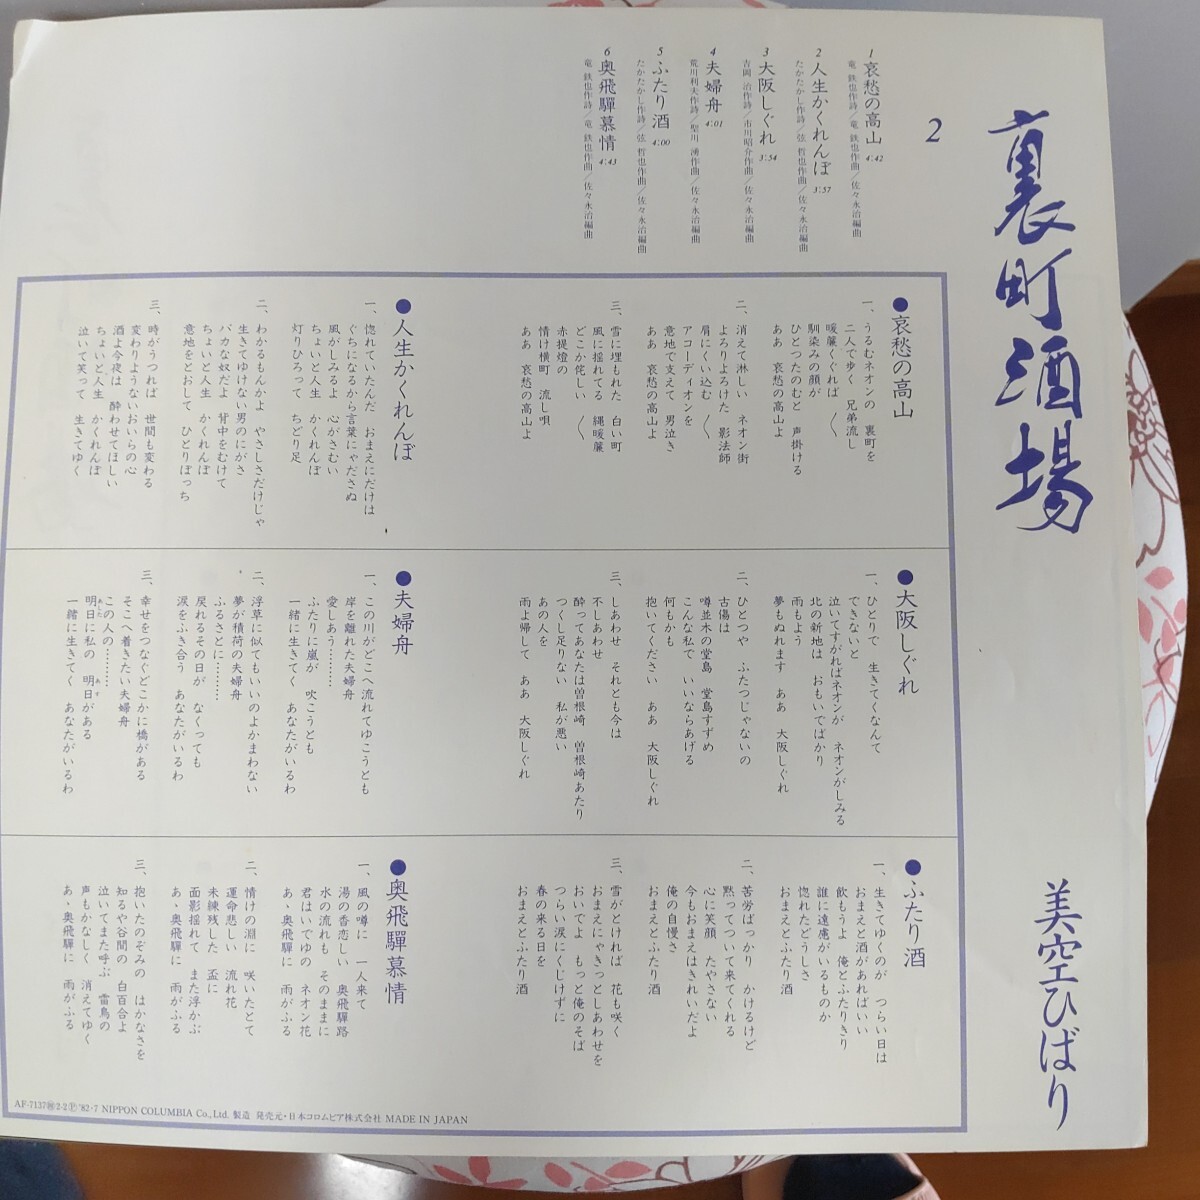 裏町酒場
美空ひばり
2
1 哀愁の高山 4:42
竜 鉄也作詩／竜 鉄也作曲／佐々永治編曲
2 人生かくれんぼ 3:57
たかたかし作詩／弦 哲也作曲／佐々永治編曲
3 大阪しぐれ 3:54
吉岡 治作詩／市川昭介作曲／佐々永治編曲
4 夫婦舟 4:01
荒川利夫作詩／聖川 湧作曲／佐々永治編曲
5 ふたり酒 4:00
たかたかし作詩／弦 哲也作曲／佐々永治編曲
6 奥飛驒慕情 4:43
竜 鉄也作詩／竜 鉄也作曲／佐々永治編曲
●哀愁の高山
一、うるむネオンの 裏町を
二人で歩く 兄弟流し
暖簾くぐれば 〱
馴染みの顔が
ひとつたのむと 声掛ける
ああ 哀愁の高山よ
二、消えて淋しい ネオン街
よろりよろけた 影法師
肩にくい込む 〱
アコーディオンを
意地で支えて 男泣き
ああ 哀愁の高山よ
三、雪に埋もれた 白い町
風に揺れてる 縄暖簾
どこか侘しい 〱
赤提燈の
情け横町 流し唄
ああ 哀愁の高山よ
●人生かくれんぼ
一、惚れていたんだ おまえにだけは
ぐちになるから言葉にゃださぬ
風がしみるよ 心がさむい
ちょいと人生 かくれんぼ
灯りひろって ちどり足
二、わかるもんかよ やさしさだけじゃ
生きてゆけない男のにがさ
バカな奴だよ 背中をむけて
ちょいと人生 かくれんぼ
意地をとおして ひとりぼっち
三、時がうつれば 世間も変わる
変わりようないおいらの心
酒よ今夜は 酔わせてほしい
ちょいと人生 かくれんぼ
泣いて笑って 生きてゆく
●大阪しぐれ
一、ひとりで 生きてくなんて
できないと
泣いてすがればネオンが ネオンがしみる
北の新地は おもいでばかり
雨もよう
夢もぬれます ああ 大阪しぐれ
二、ひとつや ふたつじゃないの
古傷は
噂並木の堂島 堂島すずめ
こんな私で いいならあげる
何もかも
抱いてください ああ 大阪しぐれ
三、しあわせ それとも今は
不しあわせ
酔ってあなたは曽根崎 曽根崎あたり
つくし足りない 私が悪い
あの人を
雨よ帰して ああ 大阪しぐれ
●夫婦舟
一、この川がどこへ流れてゆこうとも
岸を離れた夫婦舟
愛しあう………
ふたりに嵐が 吹こうとも
一緒に生きてく あなたがいるわ
二、浮草に似てもいいのよかまわない
夢が積荷の夫婦舟
ふるさとに………
戻れるその日が なくっても
涙をふき合う あなたがいるわ
三、幸せをつなぐどこかに橋がある
そこへ着きたい夫婦舟
この人の………
明日に私の 明日がある
一緒に生きてく あなたがいるわ
●ふたり酒
一、生きてゆくのが つらい日は
おまえと酒があればいい
飲もうよ 俺とふたりきり
誰に遠慮がいるものか
惚れたどうしさ
おまえとふたり酒
二、苦労ばっかり かけるけど
黙ってついて来てくれる
心に笑顔 たやさない
今もおまえはきれいだよ
俺の自慢さ
おまえとふたり酒
三、雪がとければ 花も咲く
おまえにゃきっとしあわせを
おいでよ もっと俺のそば
つらい涙にくじけずに
春の来る日を
おまえとふたり酒
●奥飛驒慕情
一、風の噂に 一人来て
湯の香恋しい 奥飛驒路
水の流れも そのままに
君はいでゆの ネオン花
あゝ奥飛驒に 雨がふる
二、情けの淵に 咲いたとて
運命悲しい 流れ花
未練残した 盃に
面影揺れて また浮かぶ
あゝ奥飛驒に 雨がふる
三、抱いたのぞみの はかなさを
知るや谷間の 白百合よ
泣いてまた呼ぶ 雷鳥の
声もかなしく 消えてゆく
あゝ奥飛驒に 雨がふる
AF-7137㊕2-2Ⓟ'82·7 NIPPON COLUMBIA Co., Ltd. 製造 発売元・日本コロムビア株式会社 MADE IN JAPAN